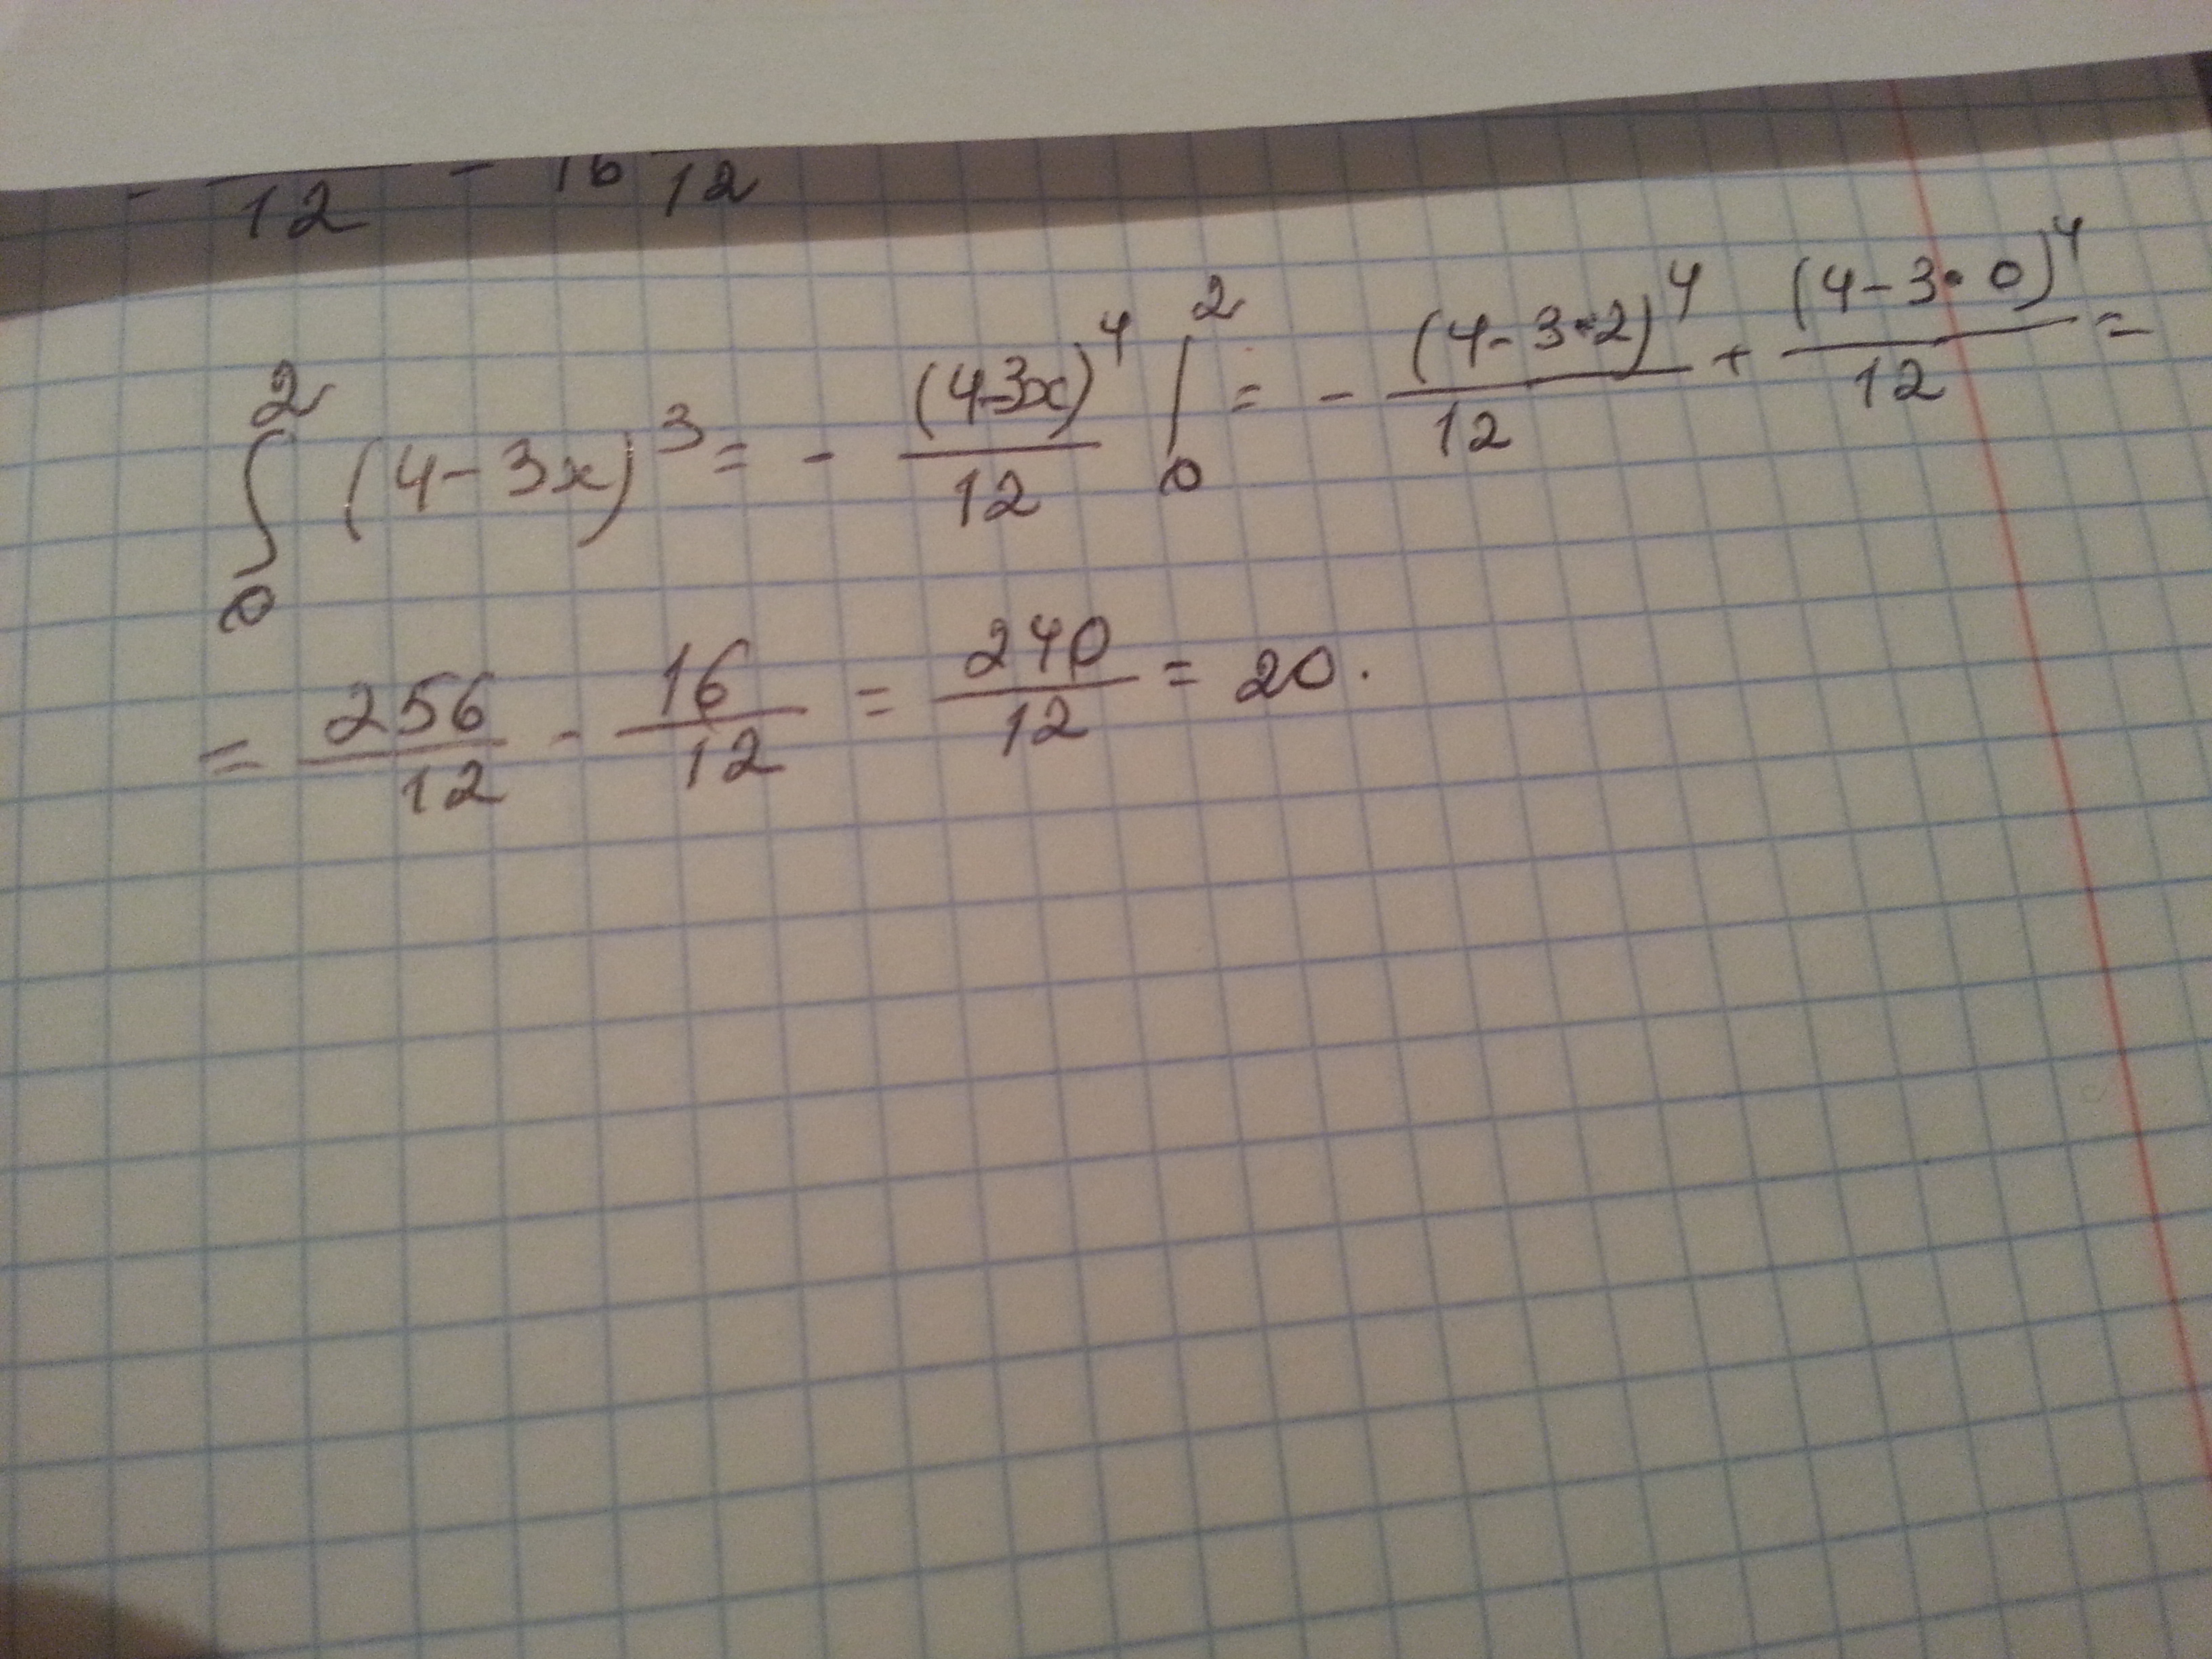 - ―/12 - 16 ―/12
∫₀² (4-3x)³ = - (4-3x)⁴/12 |₀² = - (4-3•2)⁴/12 + (4-3•0)⁴/12 =
= 256/12 - 16/12 = 240/12 = 20.